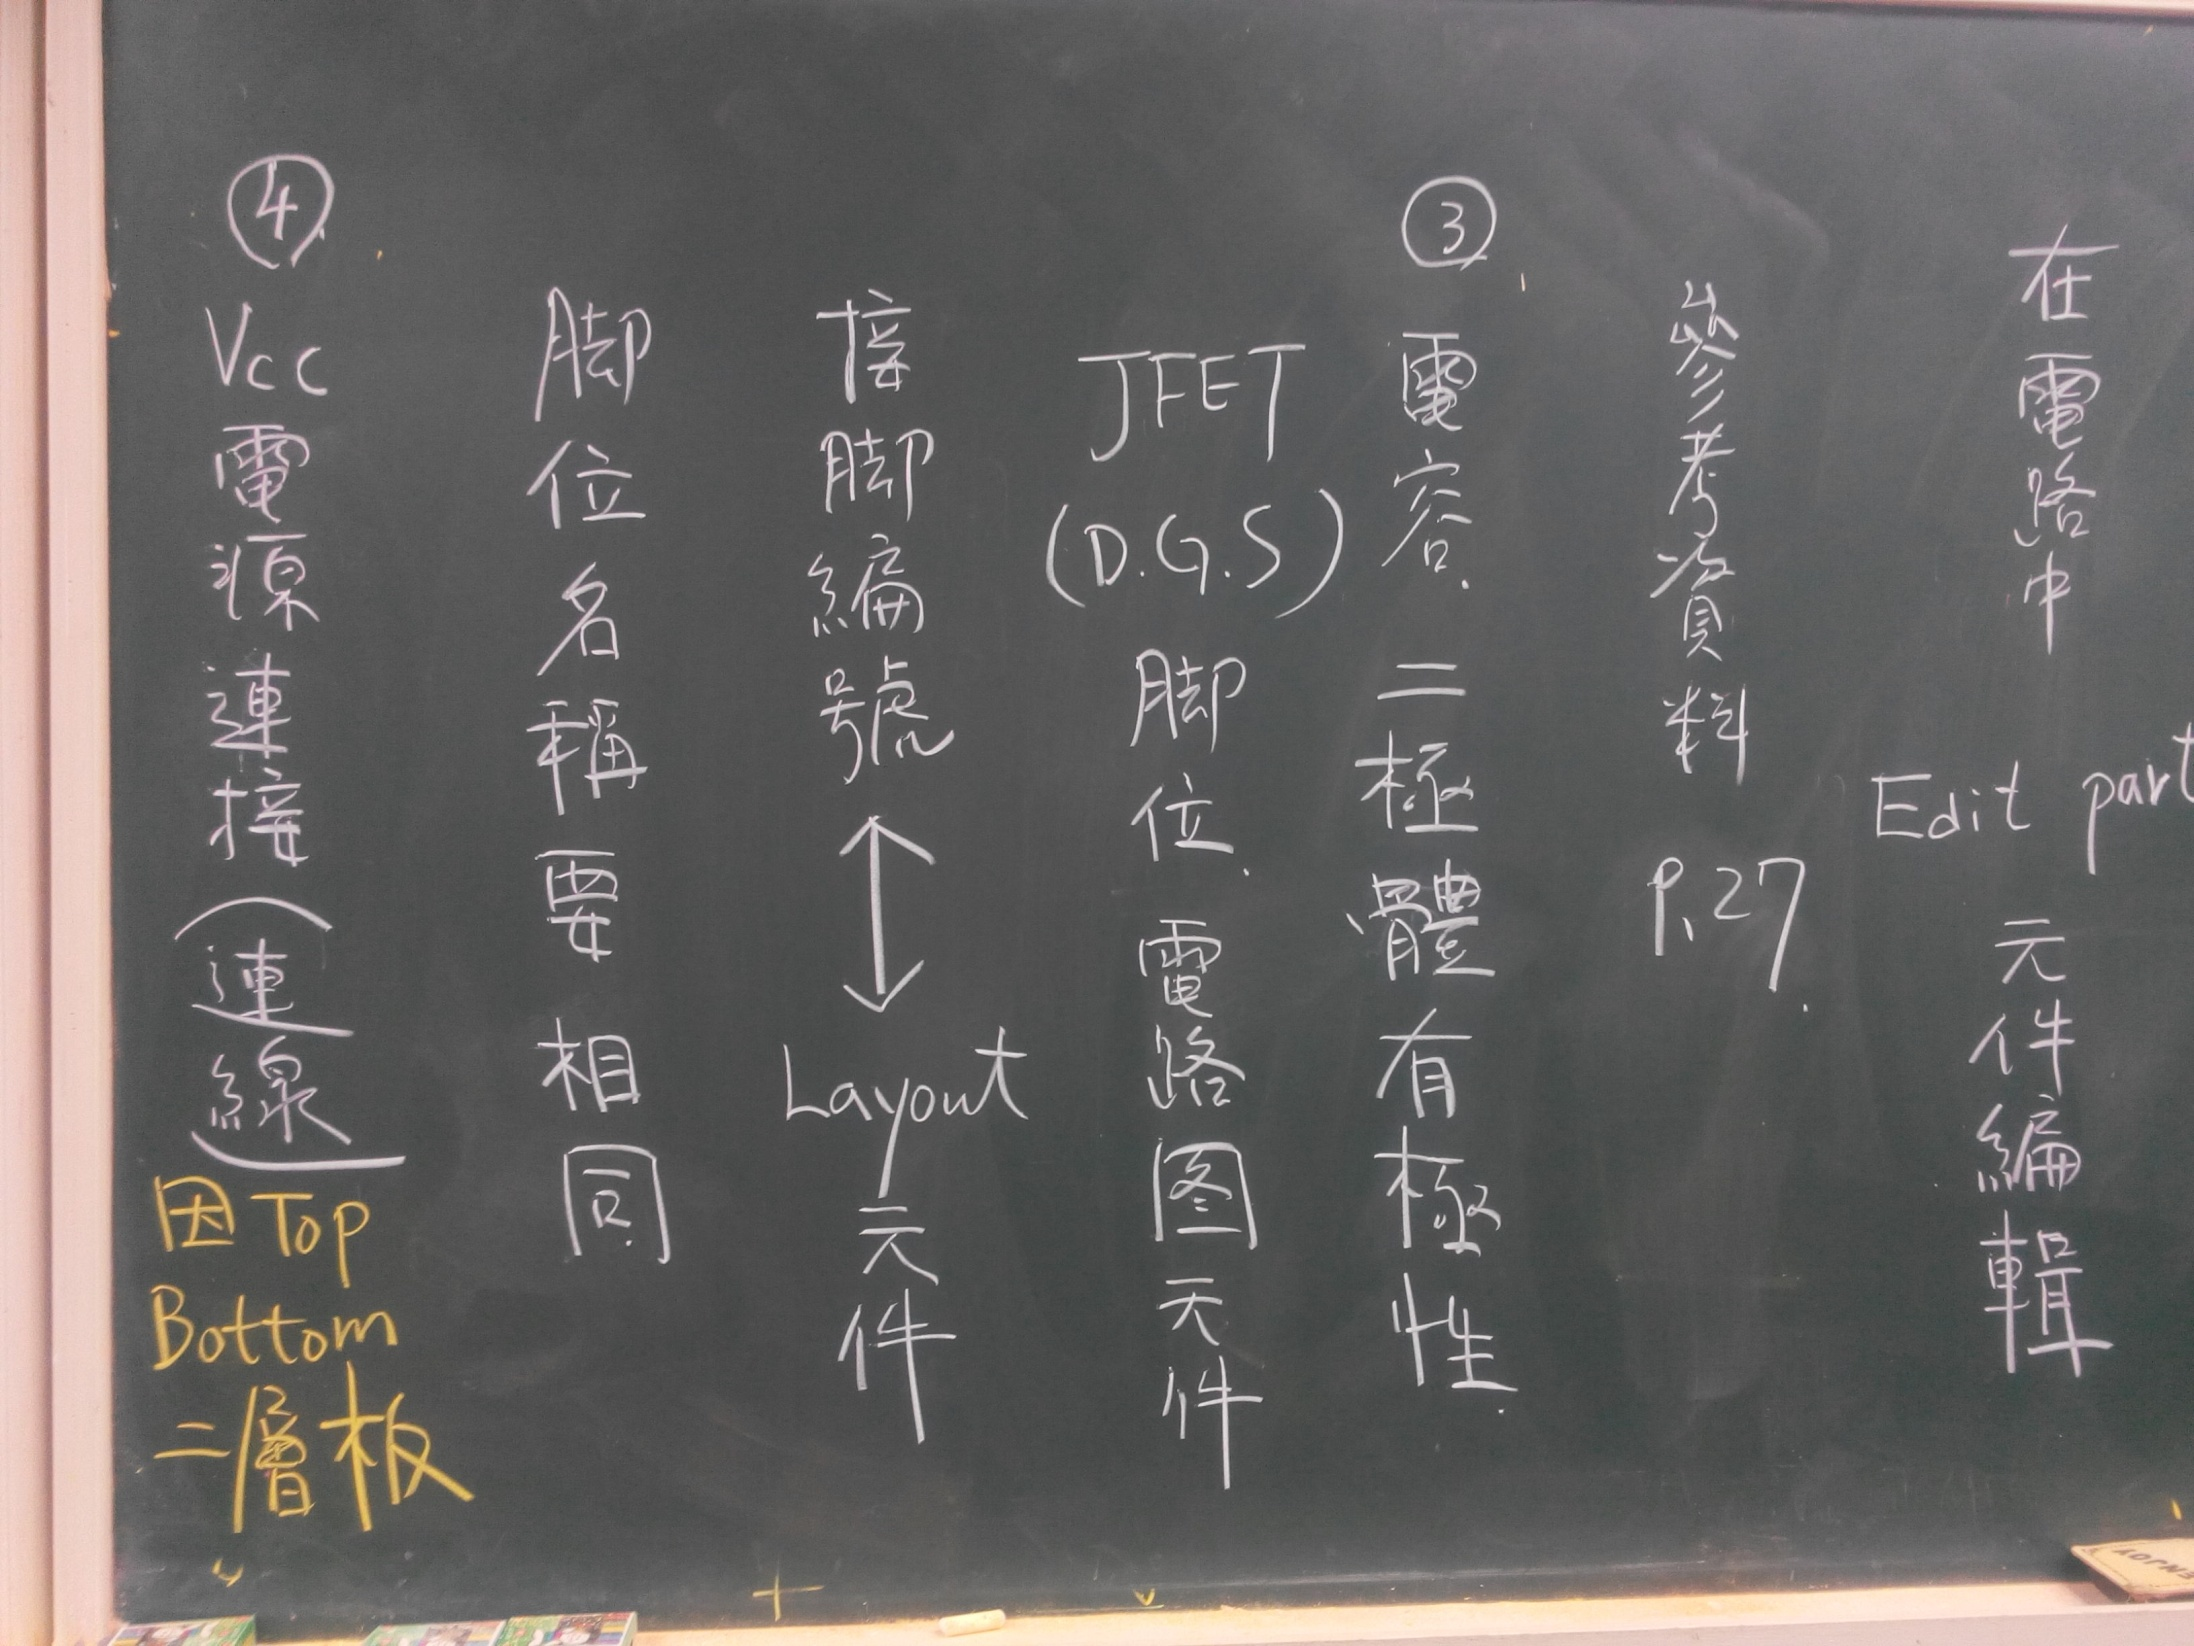 在電路中 Edit part 元件編輯
參考資料 P.27
③ 電容.二極體有極性
JFET (D.G.S) 脚位.電路图元件
接脚編號 ↔ Layout 元件
脚位名稱要相同
④ Vcc電源連接(連線)
因Top
Bottom
二層板
ENJOY